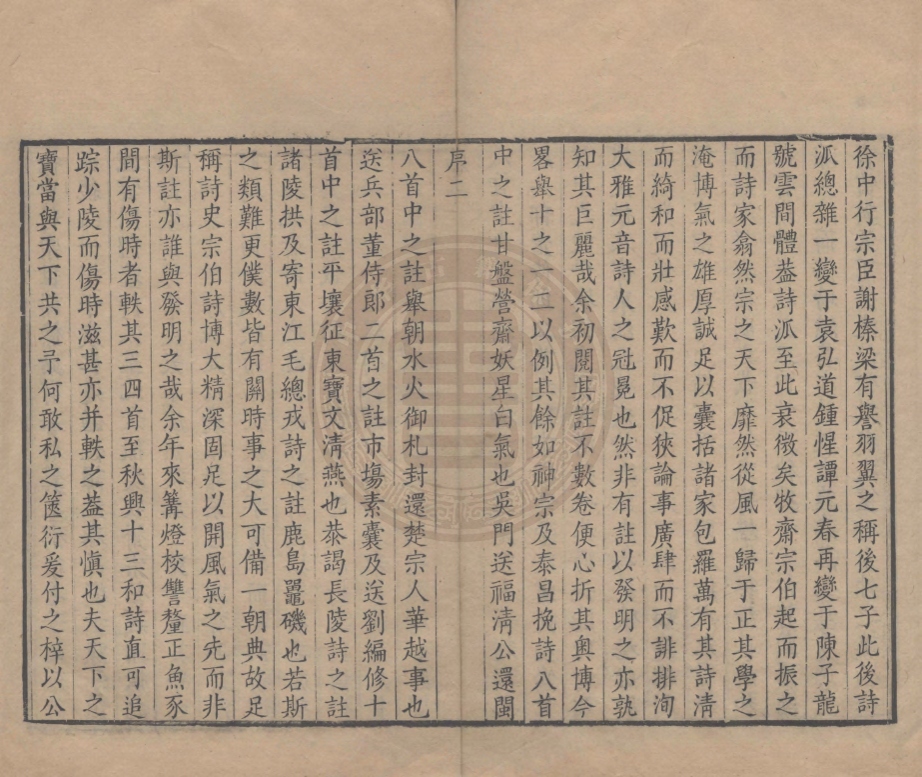 徐中行宗臣謝榛梁有譽羽翼之稱後七子此後詩
派總雜一變于袁弘道鍾惺譚元春再變于陳子龍
號雲間體葢詩派至此衰微矣牧齋宗伯起而振之
而詩家翕然宗之天下靡然從風一歸于正其學之
淹博氣之雄厚誠足以囊括諸家包羅萬有其詩清
而綺和而壯感歎而不促狹論事廣肆而不誹排洵
大雅元音詩人之冠冕也然非有註以發明之亦孰
知其巨麗哉余初閱其註不數卷便心折其奧博今
畧舉十之一二以例其餘如神宗及泰昌挽詩八首
中之註甘盤營齋妖星白氣也吳門送福清公還閩
序二
八首中之註舉朝水火御札封還楚宗人華越事也
送兵部董侍郎二首之註市塲素囊及送劉編修十
首中之註平壤征東寶文清燕也恭謁長陵詩之註
諸陵拱及寄東江毛總戎詩之註鹿島鼉磯也若斯
之類難更僕數皆有關時事之大可備一朝典故足
稱詩史宗伯詩博大精深固足以開風氣之先而非
斯註亦誰與發明之哉余年來篝燈校讐釐正魚豕
間有傷時者軼其三四首至秋興十三和詩直可追
踪少陵而傷時滋甚亦并軼之葢其慎也夫天下之
寶當與天下共之予何敢私之篋衍爰付之梓以公